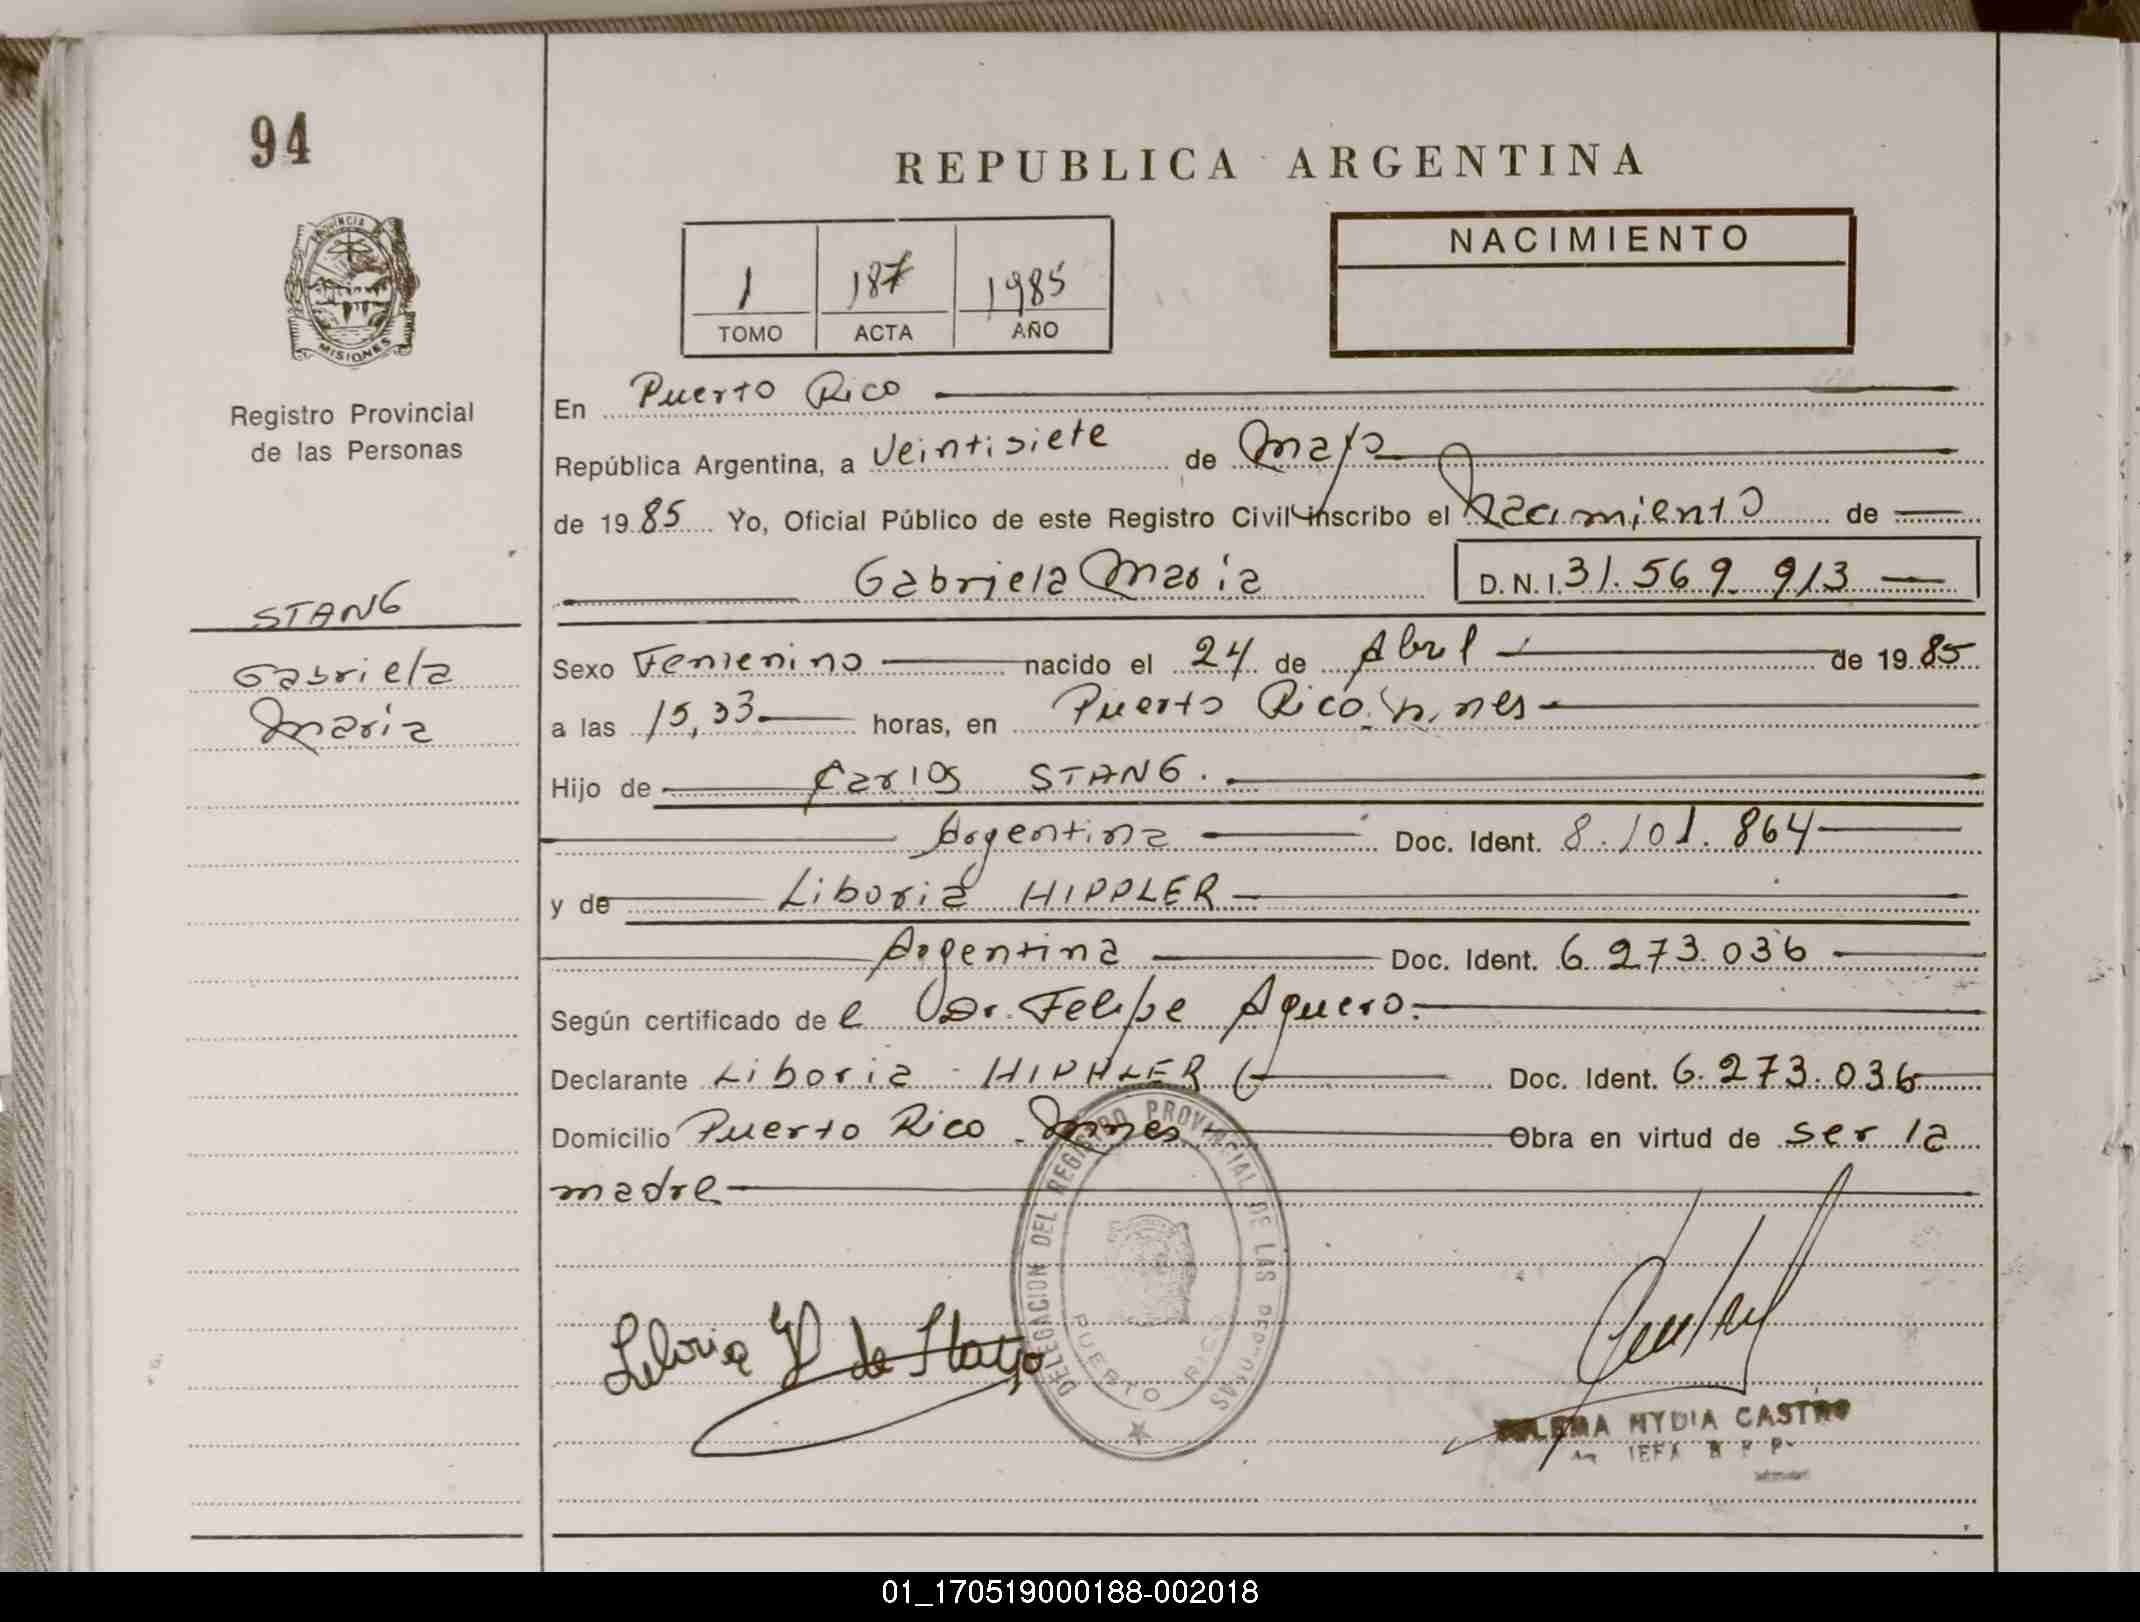 94
REPUBLICA ARGENTINA
PROVINCIA
MISIONES
Registro Provincial
de las Personas
1 187 1985
TOMO ACTA AÑO
NACIMIENTO
En Puerto Rico
República Argentina, a Veintisiete de Mayo
de 1985 Yo, Oficial Público de este Registro Civil inscribo el Nacimiento de
Gabriela Maria D.N.I. 31.569.913
STANG
Gabriela
Maria
Sexo Femenino nacido el 24 de Abril de 1985
a las 15,33 horas, en Puerto Rico. Mnes
Hijo de Carlos STANG.
Argentina Doc. Ident. 8.101.864
y de Liboria HIPPLER
Argentina Doc. Ident. 6.273.036
Según certificado de l Dr. Felipe Aguero.
Declarante Liboria HIPPLER Doc. Ident. 6.273.036
Domicilio Puerto Rico - Mnes Obra en virtud de ser la
madre
DELEGACION DEL REGISTRO PROVINCIAL DE LAS PERSONAS
PUERTO RICO
Liboria H de Stang
NYDIA CASTRO
01_170519000188-002018